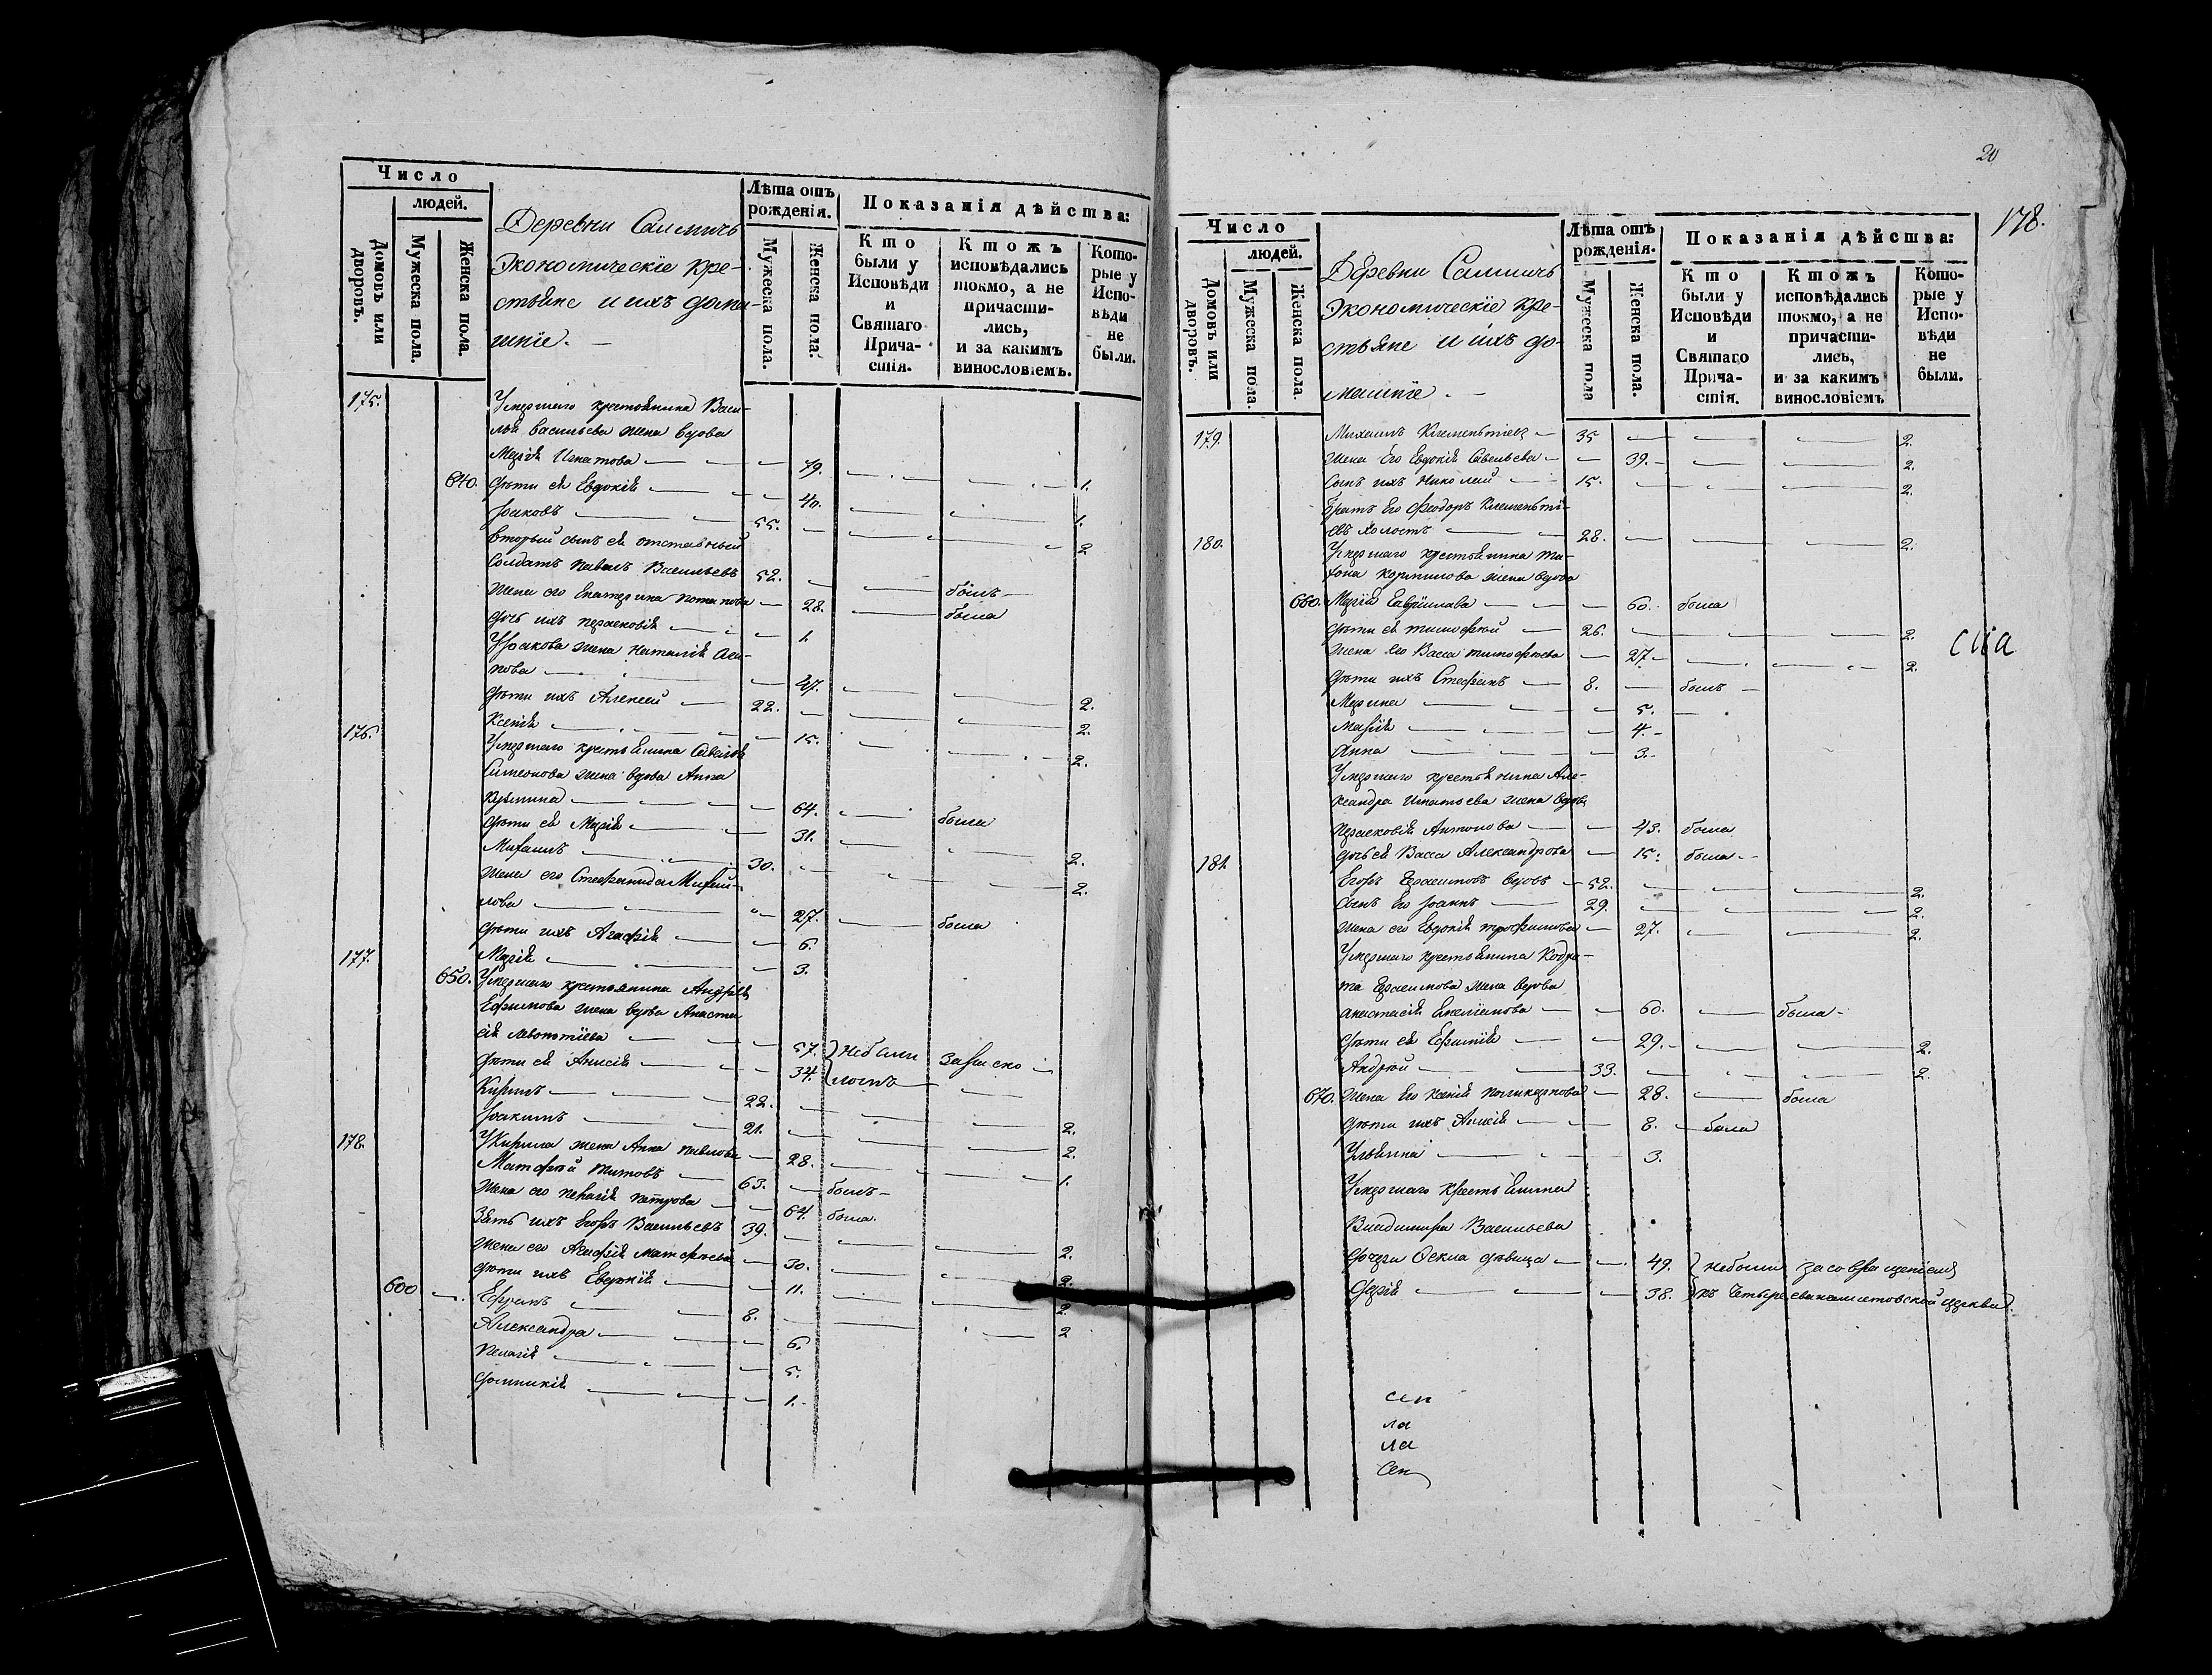 Число
людей.
Домовъ или дворовъ.
Мужеска пола.
Женска пола.
Деревни
Экономическіе кре-
стьяне и ихъ дома-
шніе.
Лѣта отъ рожденія.
Мужеска пола.
Женска пола.
Показанія дѣйства:
Кто были у Исповѣди и Святаго Прича- стія.
Ктожъ исповѣдались токмо, а не причасти- лись, и за какимъ винословіемъ.
Кото- рые у Испо- вѣди не были.
175. Умершаго крестьянина Васи-
лья Васильева жена вдова
Марія Игнатова 79. 1.
640. Дѣти ея Евдокія 40. 1.
Іяковъ 55. 2
Вторый сынъ ея отставный
Солдатъ Павелъ Васильевъ 52. былъ
Жена его Екатерина Потапова 28. была
Дочь ихъ Парасковія 1.
У Іякова жена Наталія
пова 47. 2.
Дѣти ихъ Алексей 22. 2.
Ксенія 15. 2.
176. Умершаго крестьянина Савелья
Симеонова жена вдова Анна
Кузмина 64. была
Дѣти ея Марія 31. 2.
Михаилъ 30. 2.
Жена его Стефанида Михай-
лова 27. была
Дѣти ихъ Агафія 6.
Марія 3.
177. 650. Умершаго крестьянина Андрея
Ефимова жена вдова Анаста
сія Левонтіева 57. небыли за раско
Дѣти ея Анисія 34. ломъ
Кирилъ 22. 2.
Іоакимъ 21. 2.
У Кирила жена Анна Павлова 28. 1.
178. Матфей Титовъ 63. былъ
Жена его Пелагія Петрова 64. была.
Зять ихъ Егоръ Васильевъ 39. 2.
Жена его Агафія Матфеева 30. 2.
Дѣти ихъ Евдокія 11. 2.
600 Ефремъ 8. 2
Александра 6.
Пелагія 5.
Домникія 1.
20
178.
Число
людей.
Домовъ или дворовъ.
Мужеска пола.
Женска пола.
Деревни
Экономическіе кре-
стьяне и ихъ до-
машніе.
Лѣта отъ рожденія.
Мужеска пола
Женска пола.
Показанія дѣйства:
Кто были у Исповѣди и Святаго Прича- стія.
Ктожъ исповѣдались токмо, а не причасти- лись, и за какимъ винословіемъ
Кото- рые у Испо- вѣди не были.
179. Михаилъ Клементіевъ 35 2.
Жена его Евдокія Савельева 39. 2.
Сынъ ихъ Николай 15. 2.
Братъ его Феодоръ Клементі-
евъ холостъ 28. 2.
180. Умершаго крестьянина
жена вдова
660. Марія Гаврилава 60. была
Дѣти ея Тимофей 26. 2.
Жена его Васса Тимофеева 27 2
Дѣти ихъ Стефанъ 8. былъ
Марина 5.
Марія 4
Анна 3.
Умершаго крестьянина Але-
ксандра Игнатьева жена вдова
Парасковія Антонова 43. была
Дочь ея Васса Александрова 15. была
181. Егоръ Герасимовъ вдовъ 52. 2.
Сынъ его Іоаннъ 29. 2.
Жена его Евдокія Трофимова 27. 2.
Умершаго крестьянина Кодра-
та Герасимова жена вдова
Анастасія 60. была
Дѣти ея Ефимія 29. 2.
Андрей 33. 2
670. Жена его Ксенія Поликарпова 28. была
Дѣти ихъ Анисія 8. была
Ульянна 3.
Умершаго крестьянина
Владимира Васильева
Дочери дѣвица 49. небыли за совращеніемъ
Дарія 38. къ церкви.
сіа
сеи
ла
ла